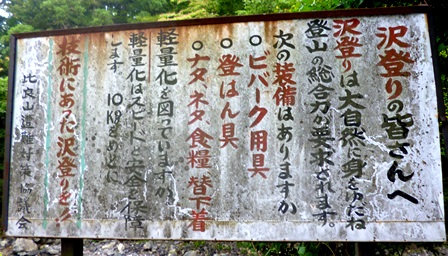 沢登りの皆さんへ
沢登りは大自然に身をゆだね
登山の総合力が要求されます。
次の装備はありますか
○ビバーク用具
○登はん具
○ナタ ネタ 食糧 替下着
軽量化を図っていますか
軽量化はスピードと安全に
ます 10KGをめやすに
技術にあった沢登りを!
比良山遭難防止対策協議会